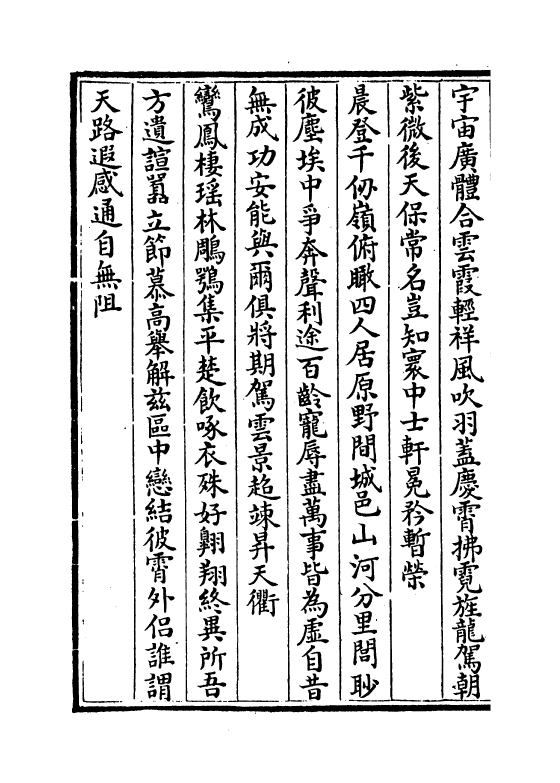 宇宙廣體合雲霞輕祥風吹羽蓋慶霄拂霓旌龍駕朝
紫微後天保常名豈知寰中士軒冕矜暫榮
晨登千仭嶺俯瞰四人居原野間城邑山河分里閭眇
彼塵埃中爭奔聲利途百齡寵辱盡萬事皆為虛自昔
無成功安能與爾俱將期駕雲景超竦昇天衢
鸞鳳棲瑶林鵰鶚集平楚飲啄衣殊好翺翔終異所吾
方遺諠囂立節慕高舉解兹區中戀結彼霄外侣誰謂
天路遐感通自無阻